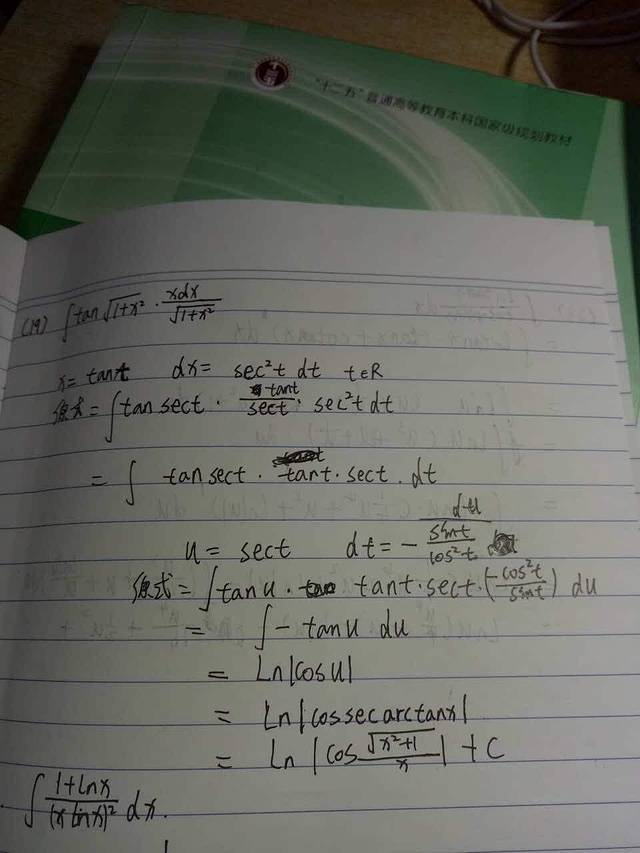 "十二五"普通高等教育本科国家级规划教材
(19) ∫tan√(1+x²) · xdx/√(1+x²)
x = tant dx = sec²t dt t∈R
原式 = ∫tan sect · tant/sect · sec²t dt
= ∫ tan sect · tant · sect · dt
u = sect dt = - du/(sint/cos²t)
原式 = ∫tanu · tant · sect · (-cos²t/sint) du
= ∫ - tanu du
= Ln|cosu|
= Ln|cossecarctanx|
= Ln|cos √(x²+1)/x| + C
∫ (1+lnx)/(x lnx)² dx.